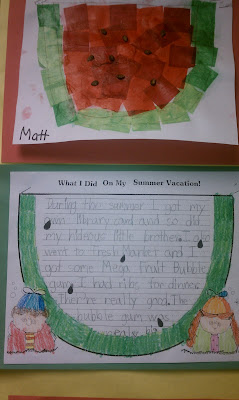 Matt
What I Did On My Summer Vacation!
During the summer I got my
own library card and so did
my hideous little brother. I also
went to Fresh Market and I
got some Mega Fruit Bubble
gum. I had ribs for dinner.
They're really good. The
bubble gum was
really big